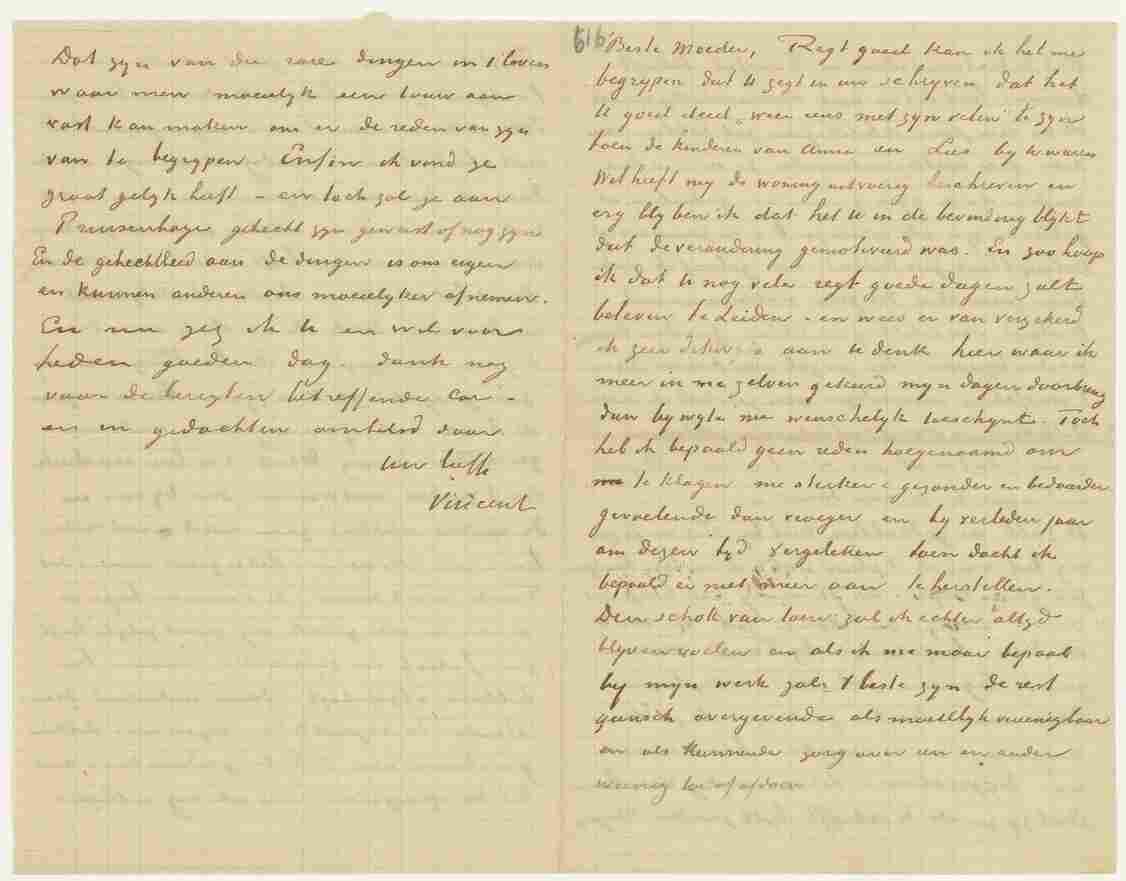 Dat zyn van die rare dingen in 't leven
waar men moeielyk een touw aan
vast kan maken om er de reden van zyn
van te begrypen. Enfin ik vond ge
groot gelyk heeft – en toch zal je aan
Princenhage gehecht zyn geweest of nog zyn
En de gehechtheid aan de dingen is ons eigen
en kunnen anderen ons moeielyker afnemen.
En nu zeg ik U en Wil voor
heden goeden dag. dank nog
voor de berigten betreffende Cor –
en in gedachten omhelsd door
uw liefh
Vincent
616
Beste Moeder, Regt goed kan ik het me
begrypen dat U zegt in uw schryven dat het
U goed deed weer eens met zyn velen te zyn
toen de kinderen van Anna en Lies by U waren
Wil heeft my de woning uitvoerig beschreven en
erg bly ben ik dat het U in de bevinding blykt
dat de verandering gemotiveerd was. En zoo hoop
ik dat U nog vele regt goede dagen zult
beleven te Leiden – en wees er van verzekerd
ik zeer dikwyls aan U denk hier waar ik
meer in me zelven gekeerd myn dagen doorbreng
dan bywyle me wenschelyk toeschynt. Toch
heb ik bepaald geen reden hoegenaamd om
te klagen me sterker & gezonder en bedaarder
gevoelende dan vroeger en by verleden jaar
om dezen tyd vergeleken toen dacht ik
bepaald er niet meer aan te herstellen.
Den schok van toen zal ik echter altyd
blyven voelen en als ik me maar bepaal
by myn werk zal 't beste zyn de rest
gansch overgevende als moeielyk vereenigbaar
en als kunnende zorg over een en ander
weinig toe of afdoen